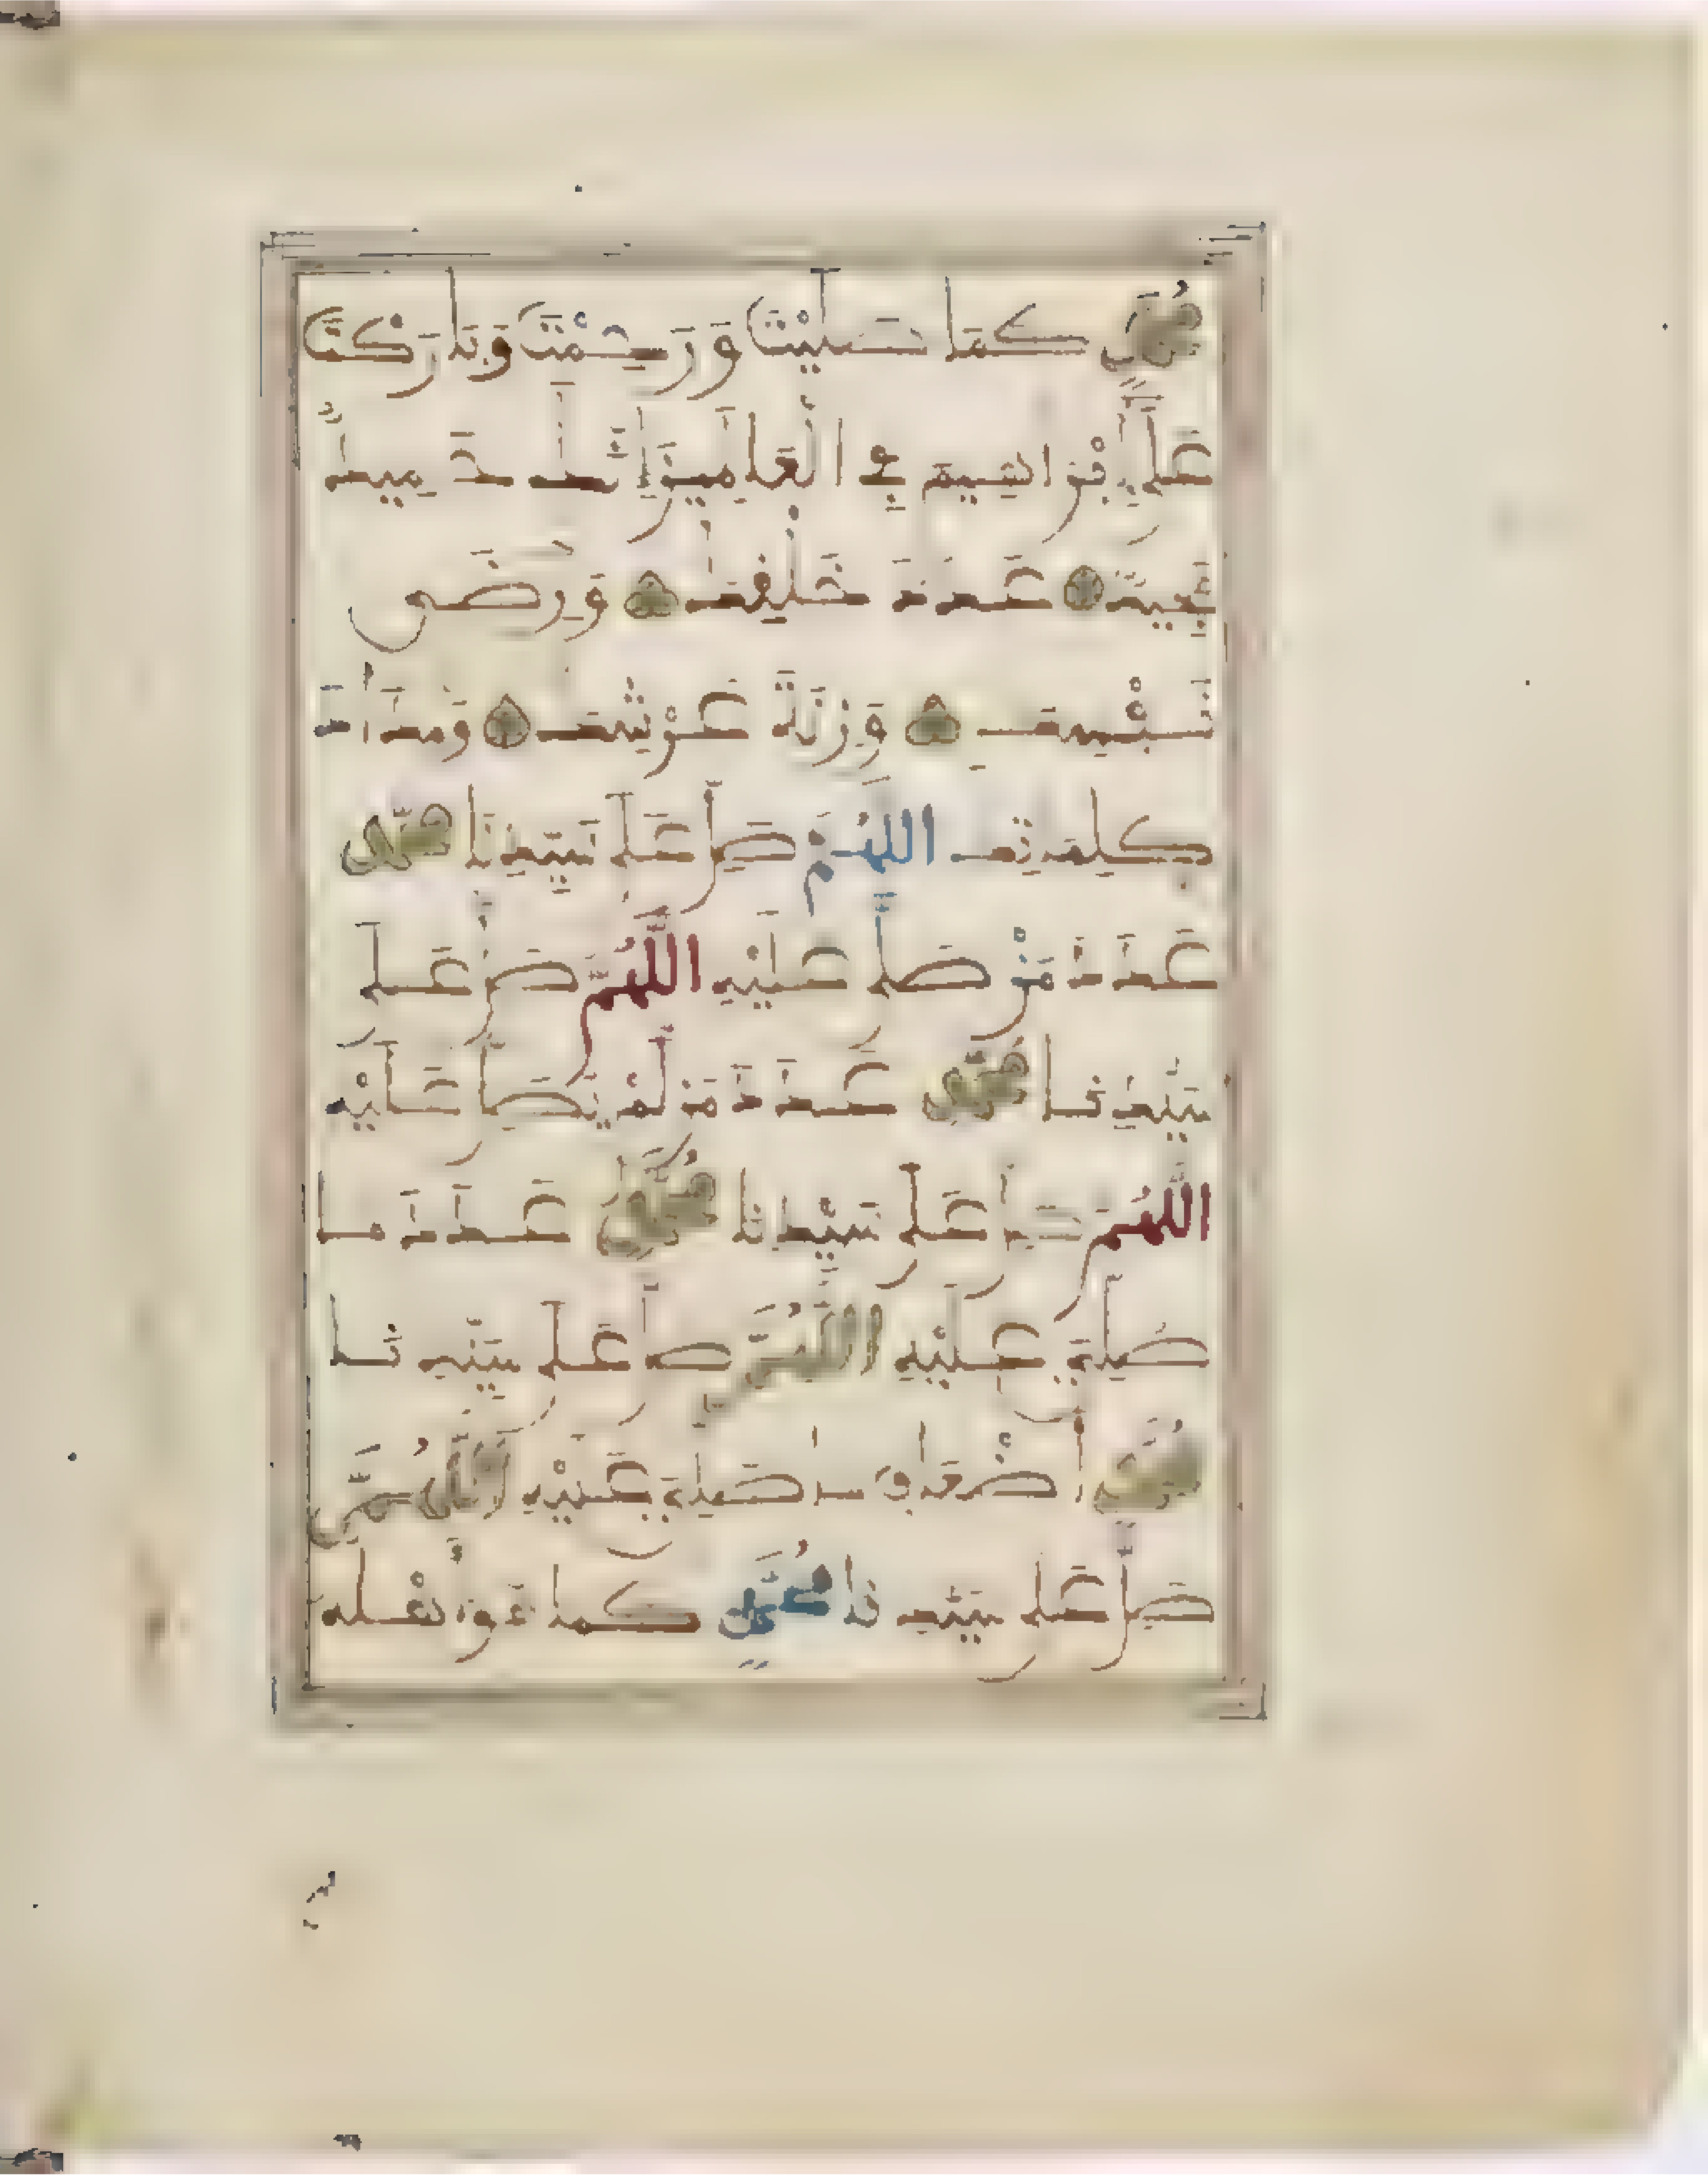 مُحَمَّدٍ كَمَا صَلَّيْتَ وَرَحِمْتَ وَبَارَكْتَ
عَلَى إِبْرَاهِيمَ فِي الْعَالَمِينَ إِنَّكَ حَمِيدٌ
مَجِيدٌ عَدَدَ خَلْقِكَ وَرِضَى
نَفْسِكَ وَزِنَةَ عَرْشِكَ وَمِدَادَ
كَلِمَتِكَ اللَّهُمَّ صَلِّ عَلَى سَيِّدِنَا مُحَمَّدٍ
عَدَدَ مَنْ صَلَّى عَلَيْهِ اللَّهُمَّ صَلِّ عَلَى
سَيِّدِنَا مُحَمَّدٍ عَدَدَ مَن لَّمْ يُصَلِّ عَلَيْهِ
اللَّهُمَّ صَلِّ عَلَى سَيِّدِنَا مُحَمَّدٍ عَدَدَ مَا
صُلِّيَ عَلَيْهِ اللَّهُمَّ صَلِّ عَلَى سَيِّدِنَا
مُحَمَّدٍ أَضْعَافَ مَا صُلِّيَ عَلَيْهِ اللَّهُمَّ
صَلِّ عَلَى سَيِّدِنَا مُحَمَّدٍ كَمَا هُوَ أَهْلُهُ